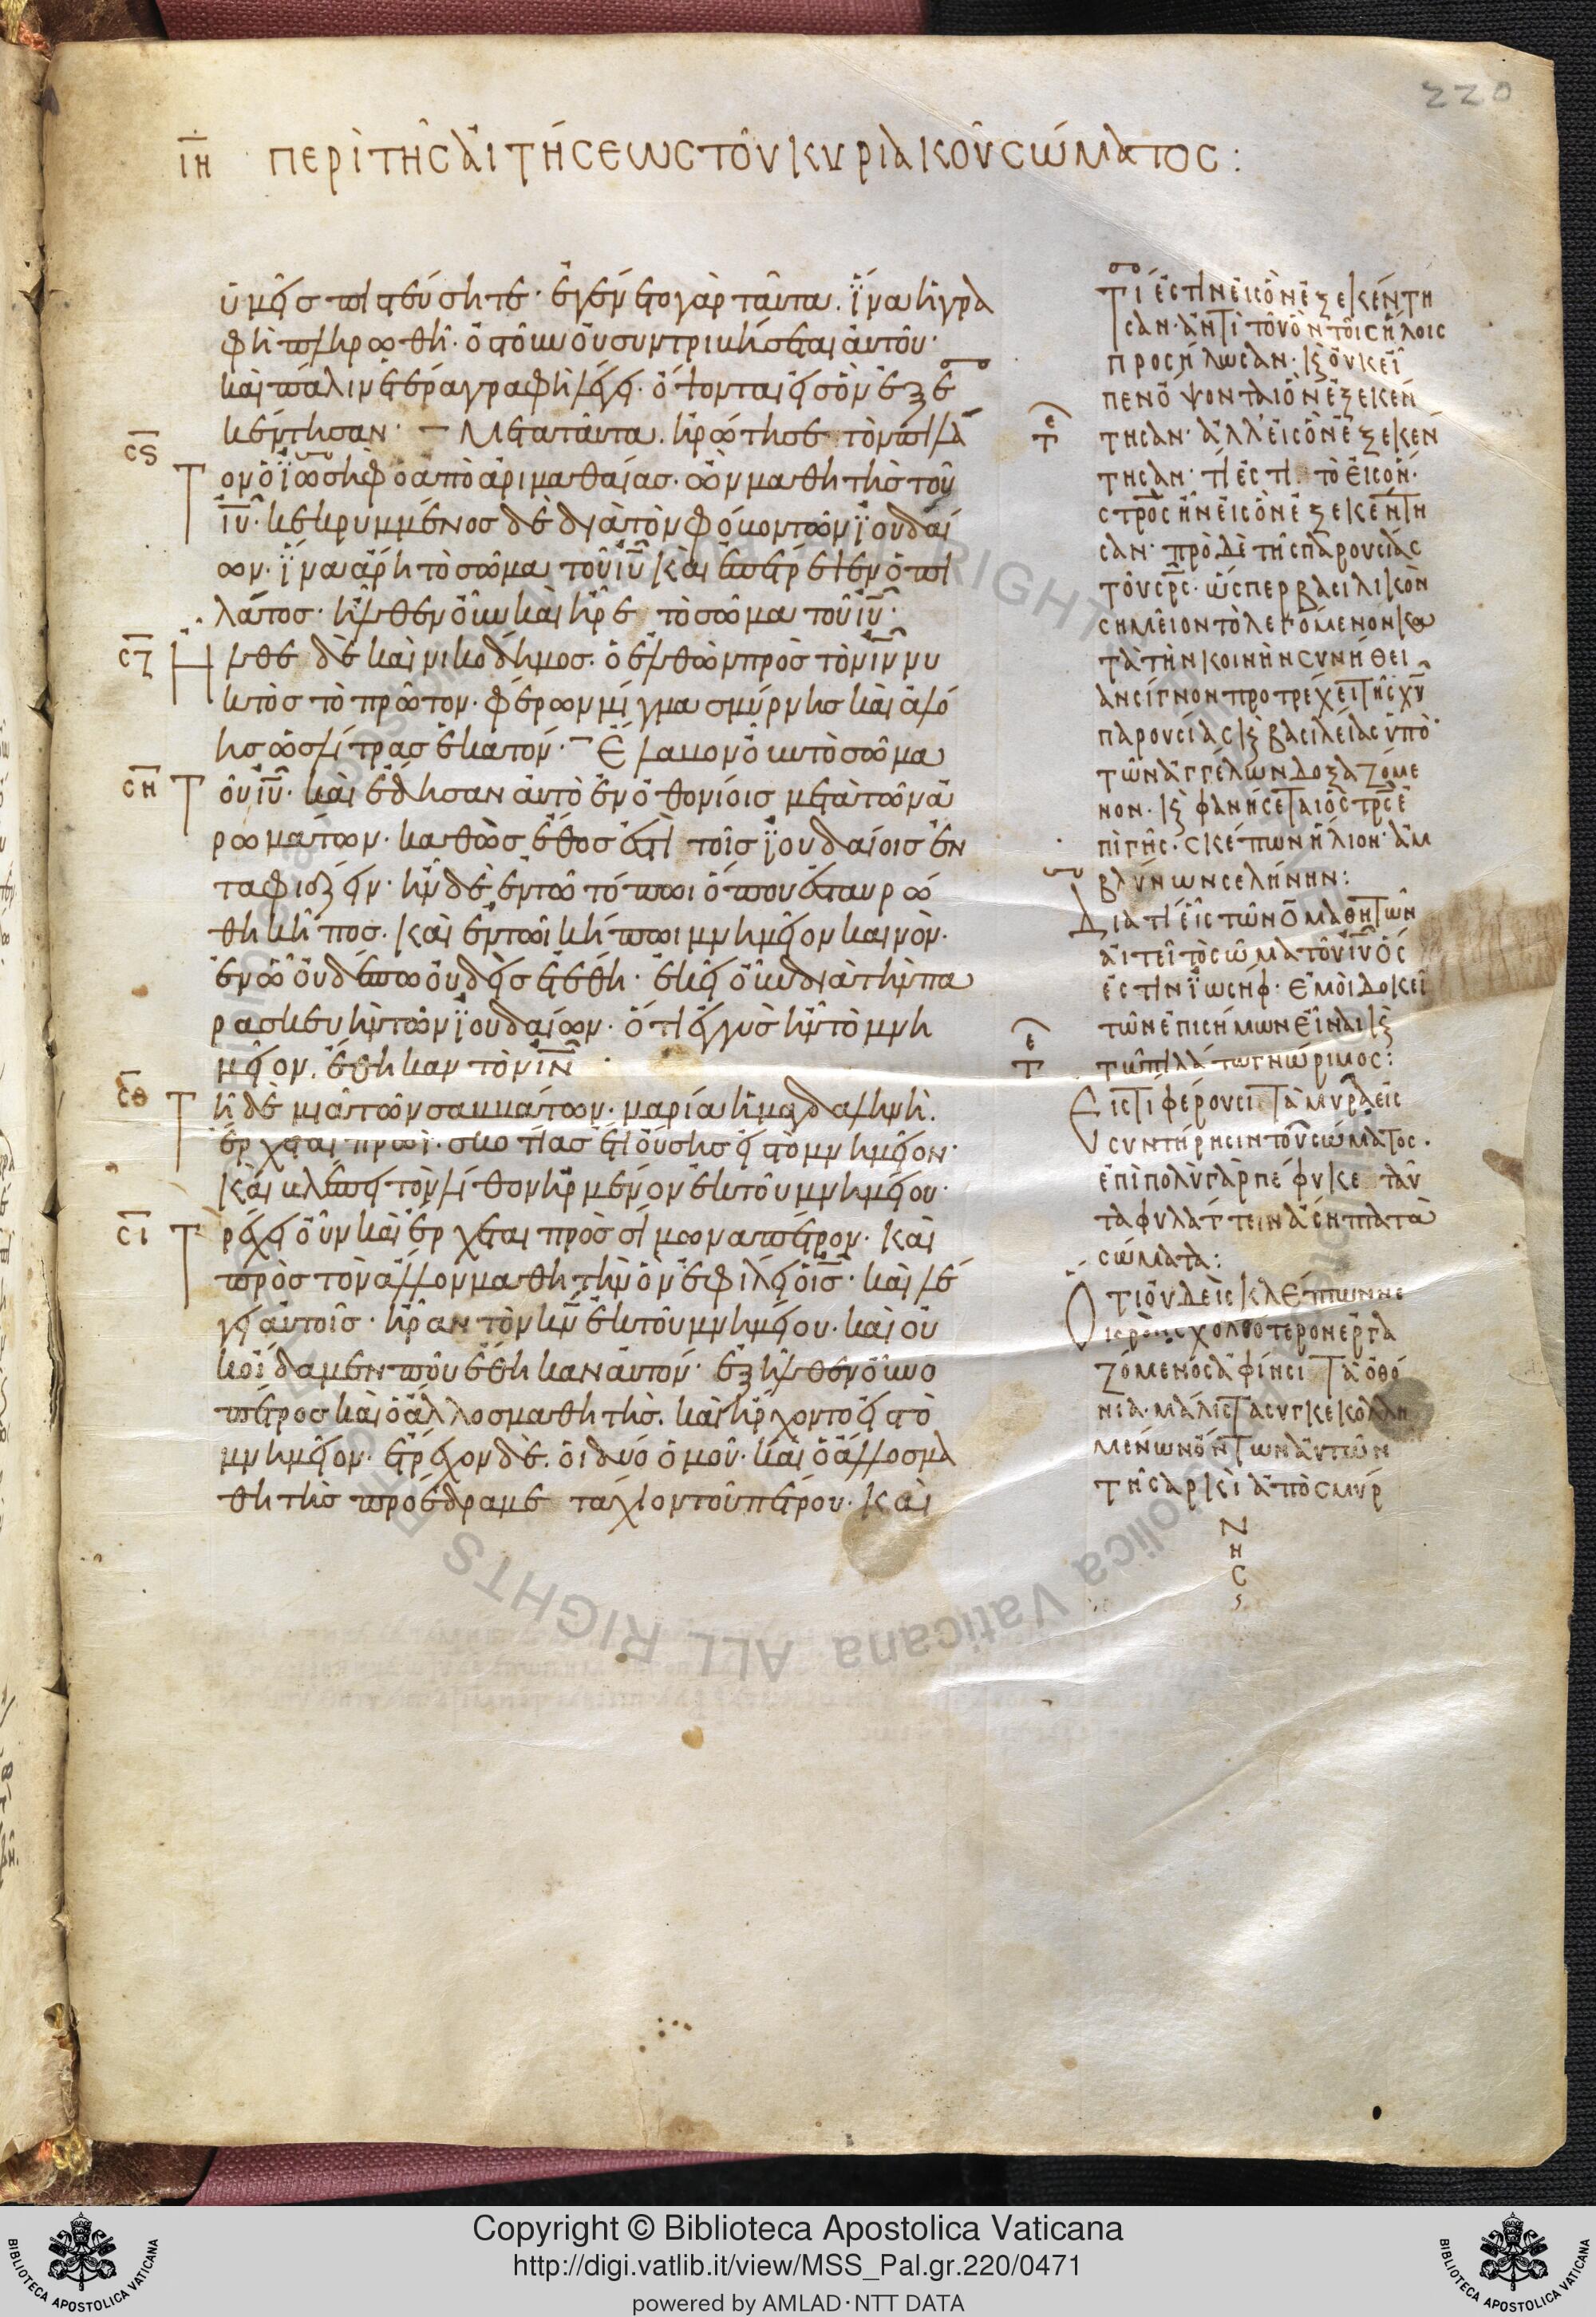 220
ιη περὶ τῆς ἀιτήσεως τοῦ κυριακοῦ σώματος :
ὑμεῖς πιστεύσητε · ἐγένετο γὰρ ταῦτα . ἵνα ἡ γρα
φὴ πληρωθῆ · ὀστοῦν οὐ συντριβήσεται ἀυτοῦ ·
καὶ πάλιν ἑτέρα γραφὴ λέγει · ὄψονται εἰς ὃν ἐξε
κέντησαν · Μετα ταῦτα . ἠρώτησε τὸν πιλᾶ
σς
τον ὁ ἰωσὴφ ὁ ἀπὸ ἀριμαθαίας · ὢν μαθητὴς τοῦ
ἰυ · κεκρυμμένος δὲ διὰ τὸν φόβον τῶν ἰουδαί
ων · ἵνα ἄρη τὸ σῶμα τοῦ ἰυ και ἐπέτρεψεν ὁ πι
λάτος · ἦλθεν οὖν καὶ ἦρε τὸ σῶμα τοῦ ἰυ ·
σζ
Ηλθε δὲ καὶ νικοδημος · ὁ ἐλθὼν πρὸς τὸν ιν νυ
κτὸς τὸ πρῶτον · φέρων μίγμα σμύρνης καὶ ἀλό
ης ὡς λίτρας ἑκατόν · Ἔλαβον οὖν τὸ σῶμα
ση
τοῦ ιυ · καὶ ἔδησαν ἀυτὸ ἐν ὀθονίοις μετὰ τῶν ἀ
ρωμάτων · καθὼς ἔθος ἐστὶ τοῖς ἰουδαίοις ἐν
ταφιάζειν · ἦν δὲ ἐν τῶ τόπωι ὅπου ἐσταυρώ
θη κῆπος . καὶ ἐν τῶι κήπωι μνημεῖον καινὸν ·
ἐν ᾧ οὐδέπω οὐδεὶς ἐτέθη · ἐκεῖ οὖν διὰ τὴν πα
ρασκευὴν τῶν ἰουδαίων · ὅτι ἐγγὺς ἦν τὸ μνη
μεῖον . ἔθηκαν τὸν ιν ·
σθ
Τῆ δὲ μιᾶ τῶν σαββάτων · μαρία ἡ μαγδαληνὴ .
ἔρχεται πρωῒ . σκοτίας ἔτι οὔσης εἰς τὸ μνημεῖον ·
και βλέπει τὸν λίθον ἠρμένον ἐκ τοῦ μνημείου ·
σι
Τρέχει οὖν καὶ ἔρχεται πρὸς σίμωνα πέτρον · καὶ
πρὸς τὸν ἄλλον μαθητὴν ὃν ἐφίλει ὁ ις · καὶ λέ
γει ἀυτοῖς · ἦραν τὸν κν ἐκ τοῦ μνημείου · καὶ οὐ
κ οἴδαμεν ποῦ ἔθηκαν ἀυτόν · ἐξῆλθεν οὖν ὁ
πέτρος καὶ ὁ ἄλλος μαθητὴς . καὶ ἤρχοντο εἰς τὸ
μνημεῖον · ἔτρεχον δὲ . ὁι δυό ὁμοῦ · καὶ ὁ ἄλλος μα
θητὴς προέδραμε ταχίον τοῦ πέτρου · Καὶ
Τί ἐστιν εἰς ὃν ἐξεκέντη
σαν · ἀντὶ τοῦ ὃν τοῖς ἥλοις
προσήλωσαν · κ οὐκ εἶ
πεν ὄψονται ὃν ἐξεκέν
τησαν · ἀλλ εἰς ὃν ἐξεκέν
τησαν · τί ἐστι το εἰς ὃν ·
στρος ἦν εἰς ὃν ἐξεκέντη
σαν · πρὸ δὲ τῆς παρουσίας
τοῦ σρς · ὥσπερ βασιλικὸν
σημεῖον τὸ λεγόμενον κα
τὰ τὴν κοινὴν συνήθει
αν σίγνον προτρέχει τῆς χυ
παρουσίας κ βασιλείας ὑπὸ
τῶν ἀγγέλων δοξαζόμε
νον · κ φανήσεται ὁ στρς ἐ
πὶ γῆς · σκέπων ἥλιον · ἀμ
βλύνων σελήνην :
Διατί εἷς τῶν ο μαθητῶν
ἀιτεῖ τὸ σῶμα τοῦ ιυ ὅς
ἐστιν ἰωσήφ · ἐμοὶ δοκεῖ
τῶν ἐπισήμων εἶναι κ
τῶ πιλάτω γνώριμος :
Εἰς τί φέρουσι τὰ μύρα εἰς
συντήρησιν τοῦ σώματος .
ἐπιπολὺ γὰρ πέφυκε ταῦ
τα φυλάττειν ἄσηπτα τὰ
σώματα :
Ὅτι οὐδεὶς κλέπτων νε
κρὸν σχολαιότερον ἐργα
ζόμενος ἀφίησι τὰ ὀθό
νια · μάλιστα συγκεκολλη
μένων ὄντων ἀυτῶν
τῆ σαρκὶ ἀπὸ σμύρ
νης
Copyright © Biblioteca Apostolica Vaticana
http://digi.vatlib.it/view/MSS_Pal.gr.220/0471
powered by AMLAD · NTT DATA